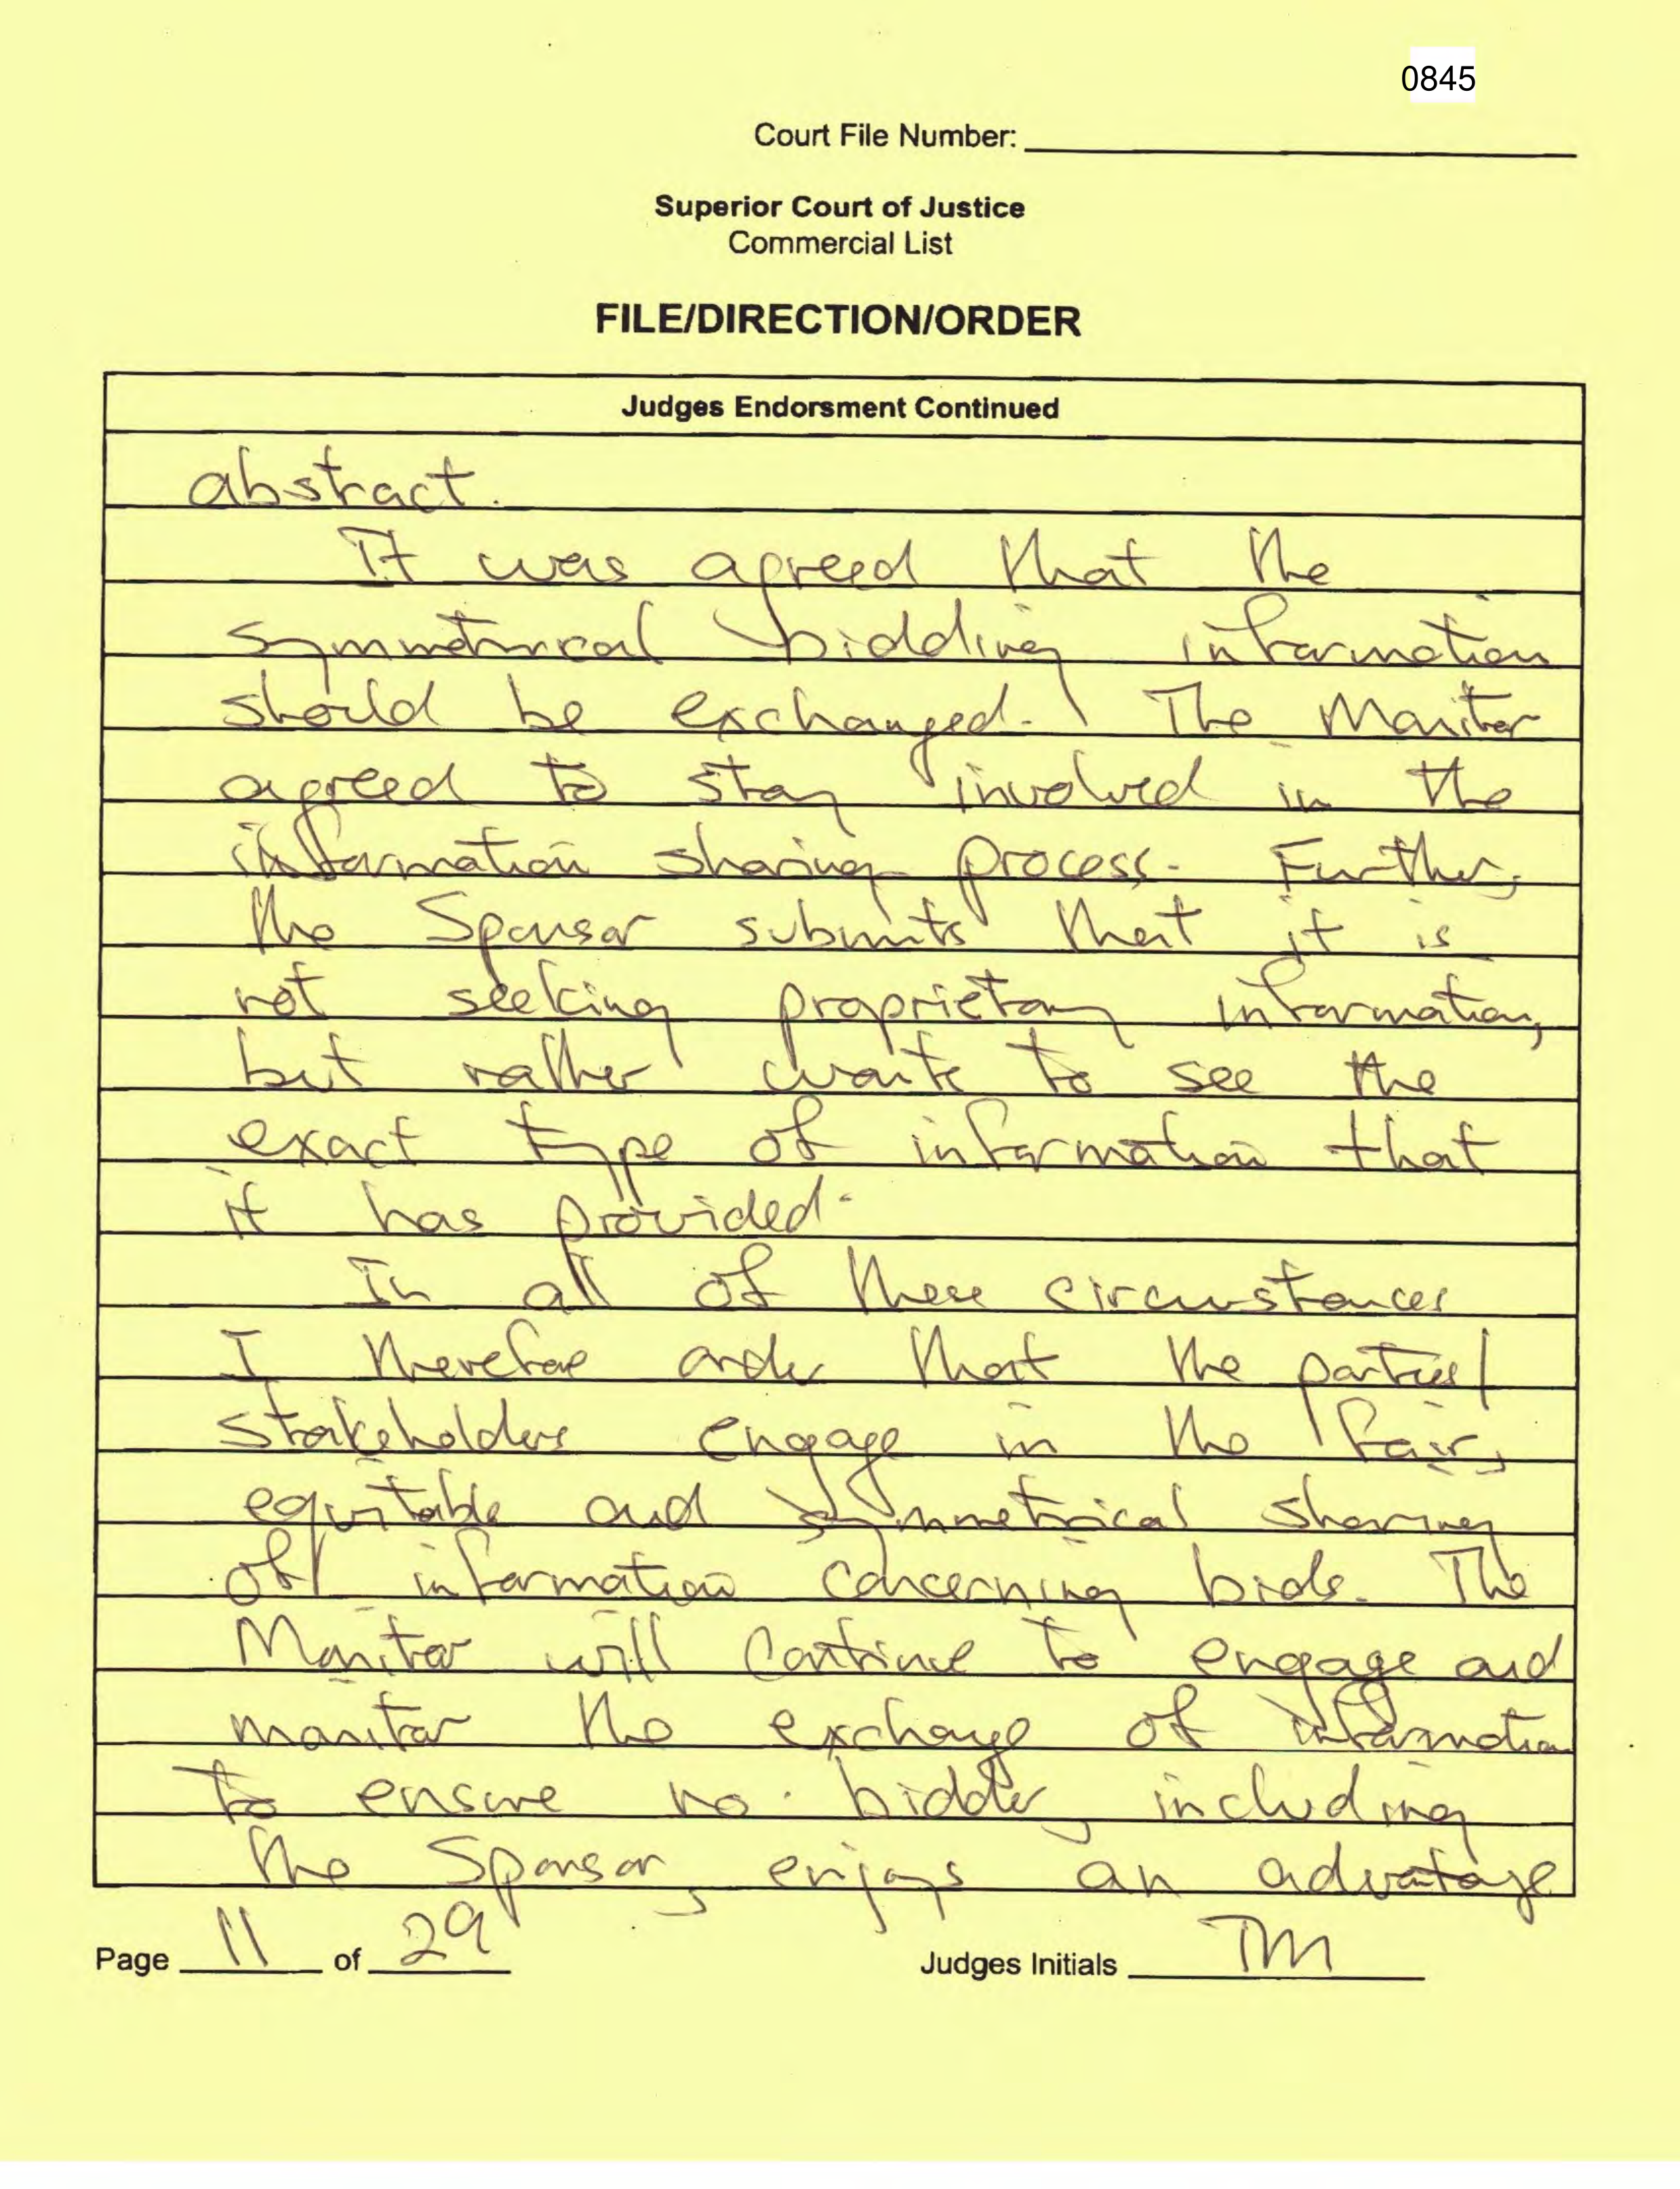 0845
Court File Number:
Superior Court of Justice
Commercial List
FILE/DIRECTION/ORDER
Judges Endorsment Continued
abstract.
It was agreed that the
symmetrical bidding information
should be exchanged. The Monitor
agreed to stay involved in the
information sharing process. Further,
the Sponsor submits that it is
not seeking proprietary information,
but rather wants to see the
exact type of information that
it has provided.
In all of these circumstances
I therefore order that the parties/
stakeholders engage in the fair,
equitable and symmetrical sharing
of information concerning bids. The
Monitor will continue to engage and
monitor the exchange of information
to ensure no bidder, including
the Sponsor, enjoys an advantage
Page 11 of 29
Judges Initials TM